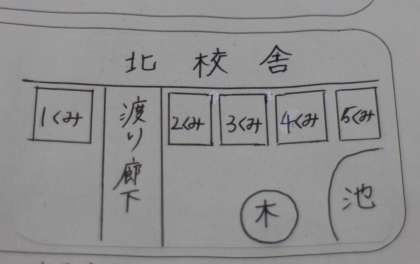 北校舎
1くみ
渡り廊下
2くみ
3くみ
4くみ
5くみ
木
池